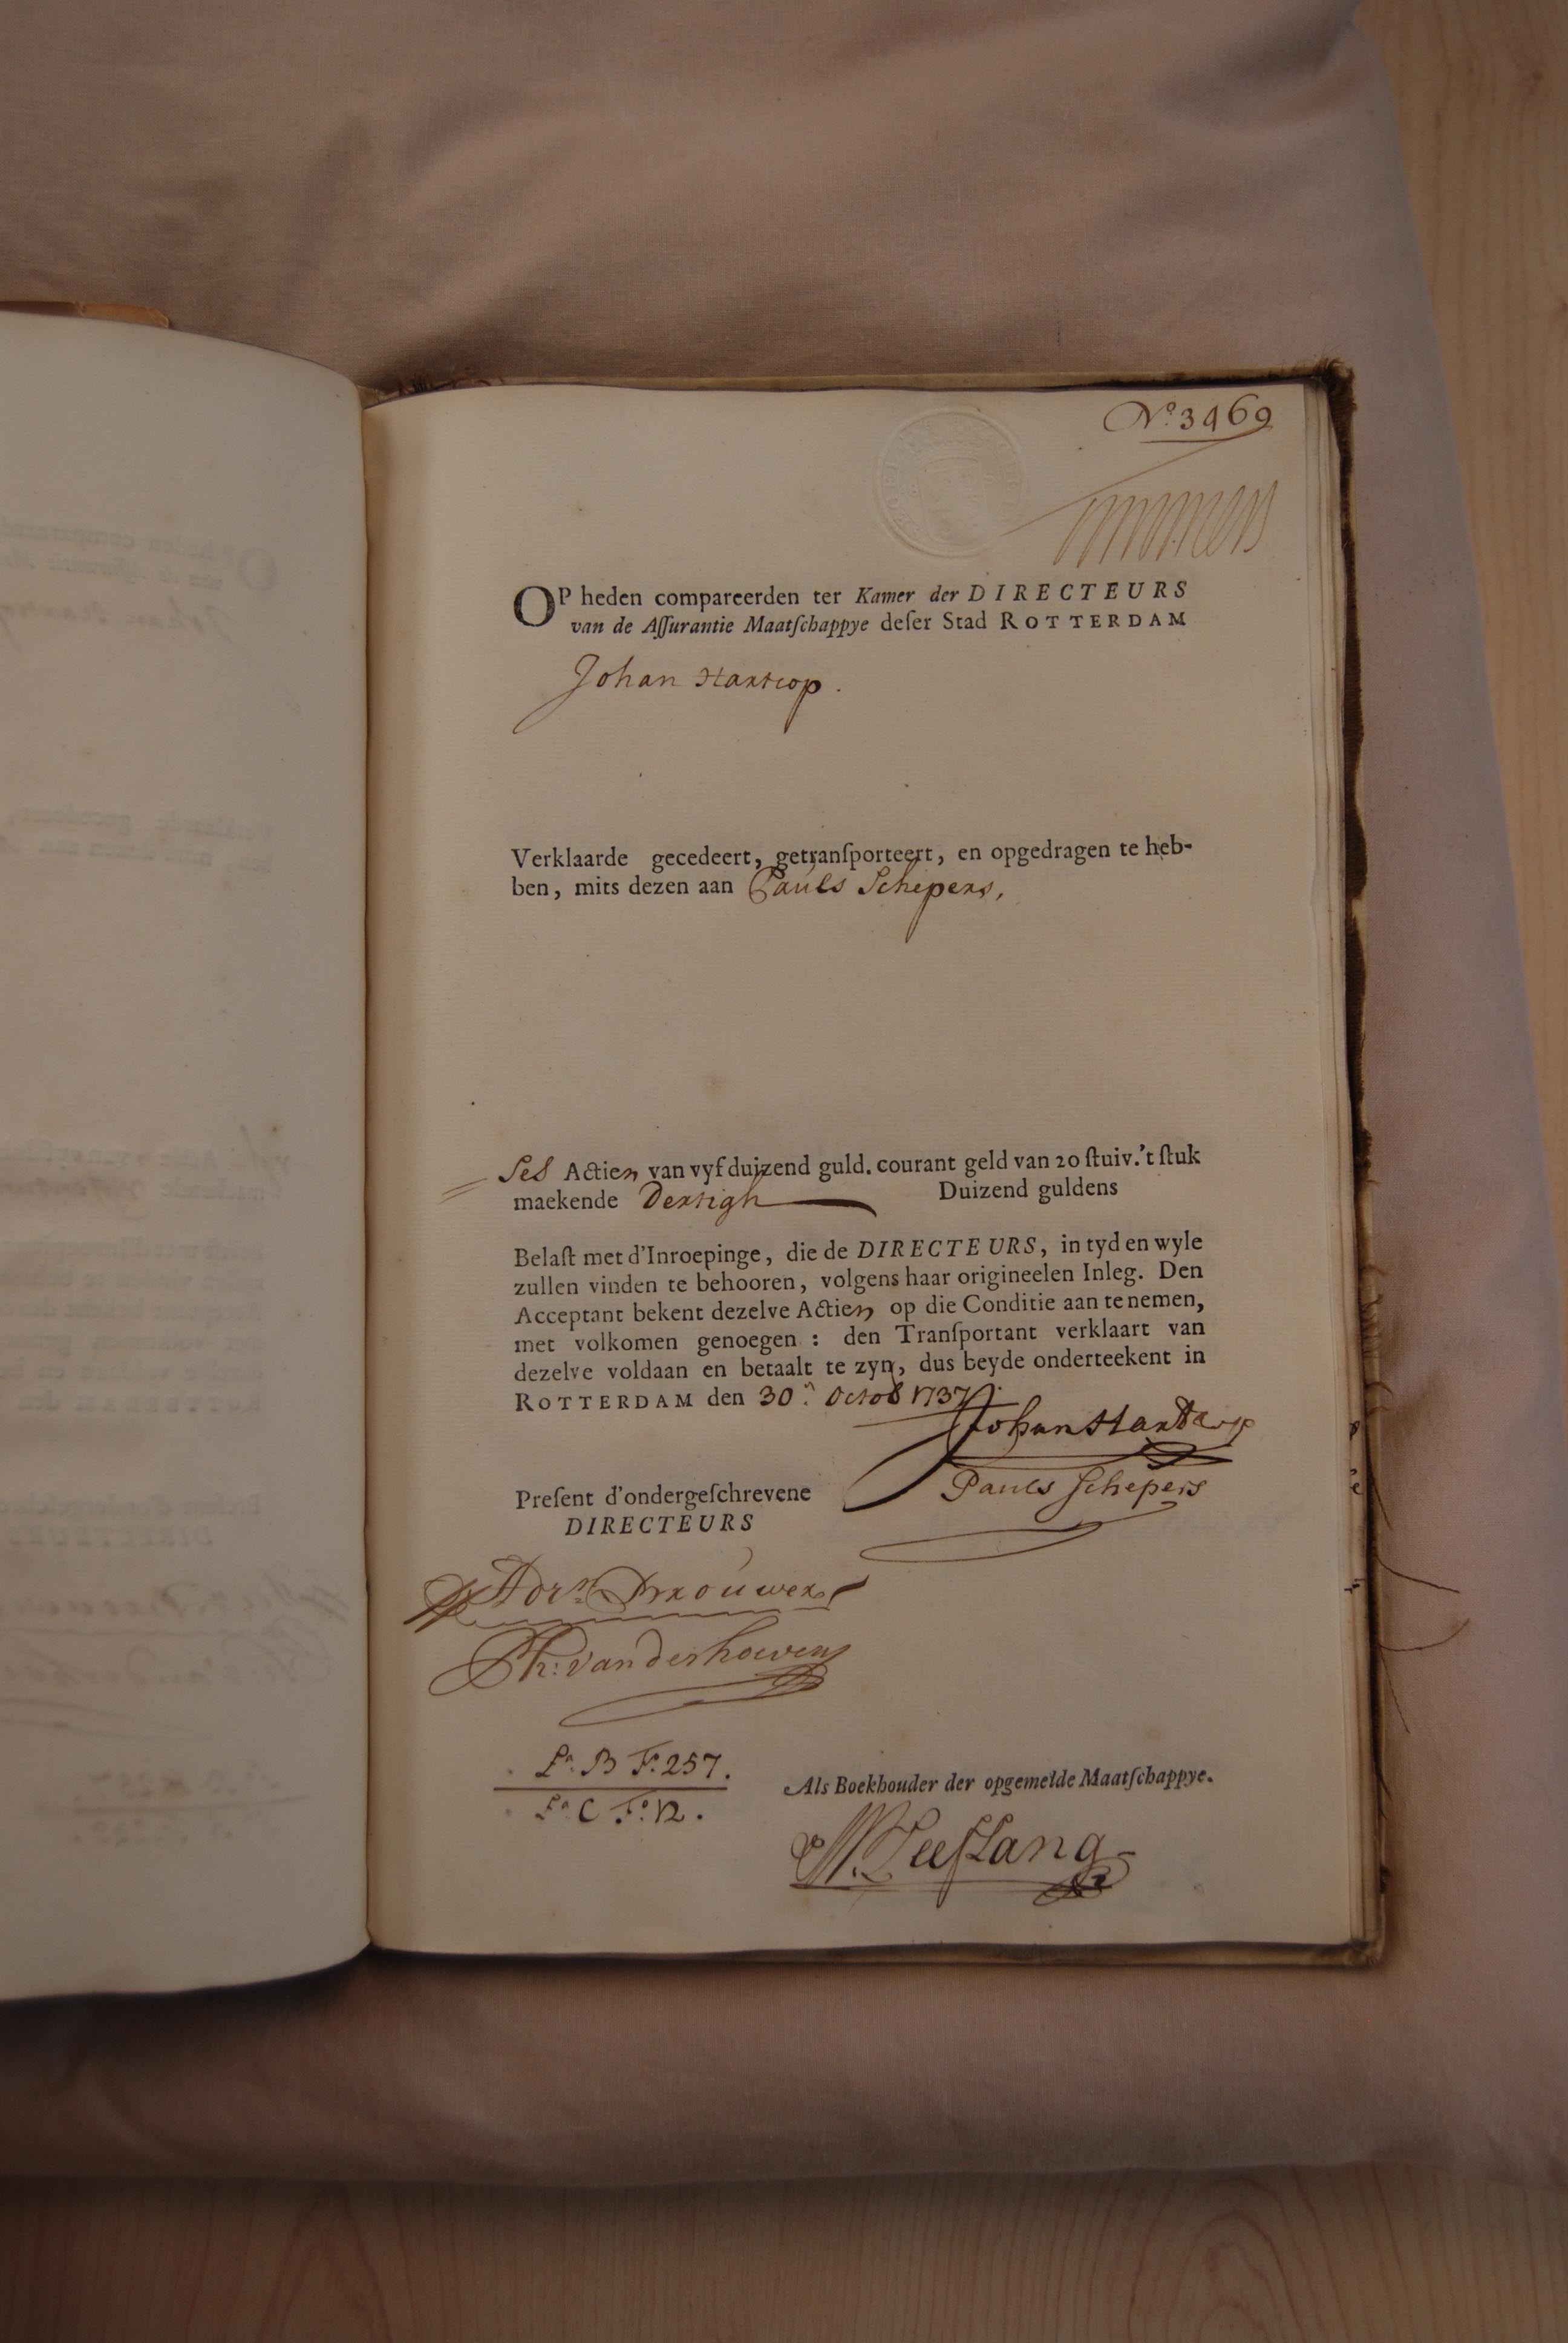 No. 3469
OP heden compareerden ter Kamer der DIRECTEURS
van de Aſſurantie Maatſchappye deſer Stad ROTTERDAM
Johan Hartcop.
Verklaarde gecedeert, getranſporteert, en opgedragen te heb-
ben, mits dezen aan Pauls Schepers,
Ses Actien van vyf duizend guld. courant geld van 20 ſtuiv. 't ſtuk
maekende Dertigh Duizend guldens
Belaſt met d'Inroepinge, die de DIRECTEURS, in tyd en wyle
zullen vinden te behooren, volgens haar origineelen Inleg. Den
Acceptant bekent dezelve Actien op die Conditie aan te nemen,
met volkomen genoegen : den Tranſportant verklaart van
dezelve voldaan en betaalt te zyn, dus beyde onderteekent in
ROTTERDAM den 30.n Octob 1737.
Johan Hartcop
Pauls Schepers
Preſent d'ondergeſchrevene
DIRECTEURS
Adrn. Brouwer
Ph: vanderhoeven
La. B Fo. 257.
La. C Fo. 12.
Als Boekhouder der opgemelde Maatſchappye.
M. Leeflang